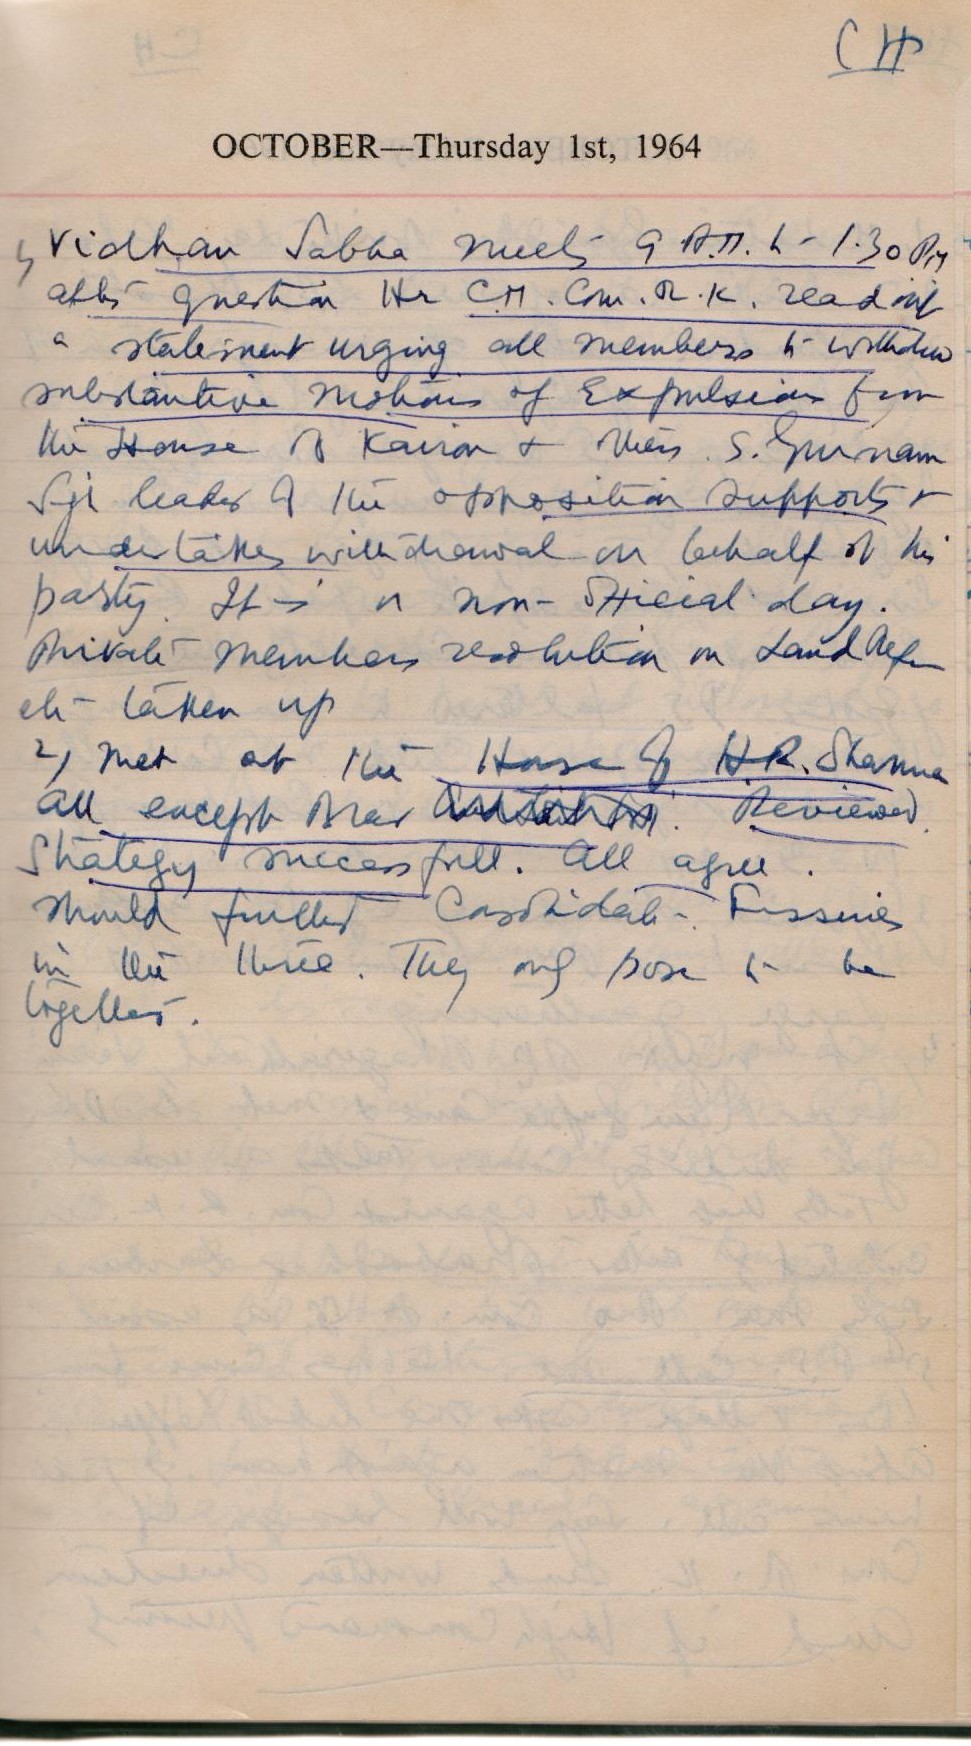 CH
OCTOBER—Thursday 1st, 1964
1) Vidhan Sabha meets 9 A.M. to 1.30 PM
after question Hr C.M. Com. R.K. read out
a statement urging all members to withdraw
substantive motions of Expulsion from
the House of Kairon & others. S. Gurnam
Sgh leader of the opposition supports &
undertakes withdrawal on behalf of his
party. It is a non-official day.
Private members resolution on Land Refm
etc taken up
2) Met at the House of H.R. Sharma
all except Brar. Reviewed
Strategy successful. All agree.
Should further Consolidate. Fissures
in the three. They only pose to be
together.